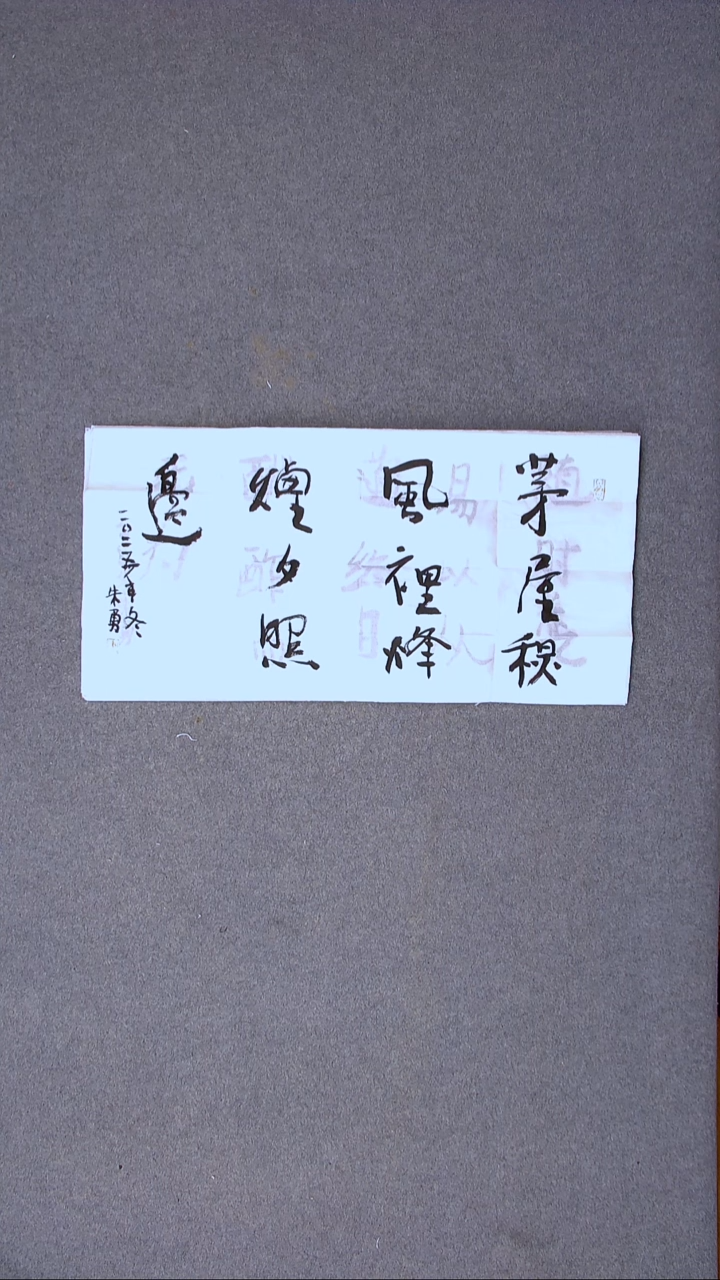 茅屋穐
風裡烽
煙夕照
邊
二〇二五年冬
朱勇